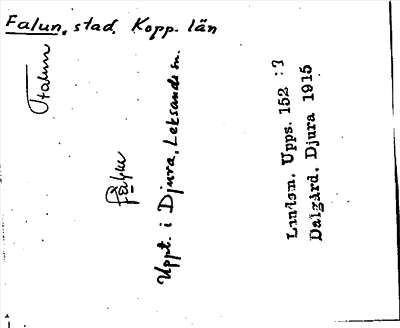 Falun, stad, Kopp. län
Falun
Uppt. i Djura, Leksands sn.
Landsm. Upps. 152 : 3
Dalgård, Djura 1915